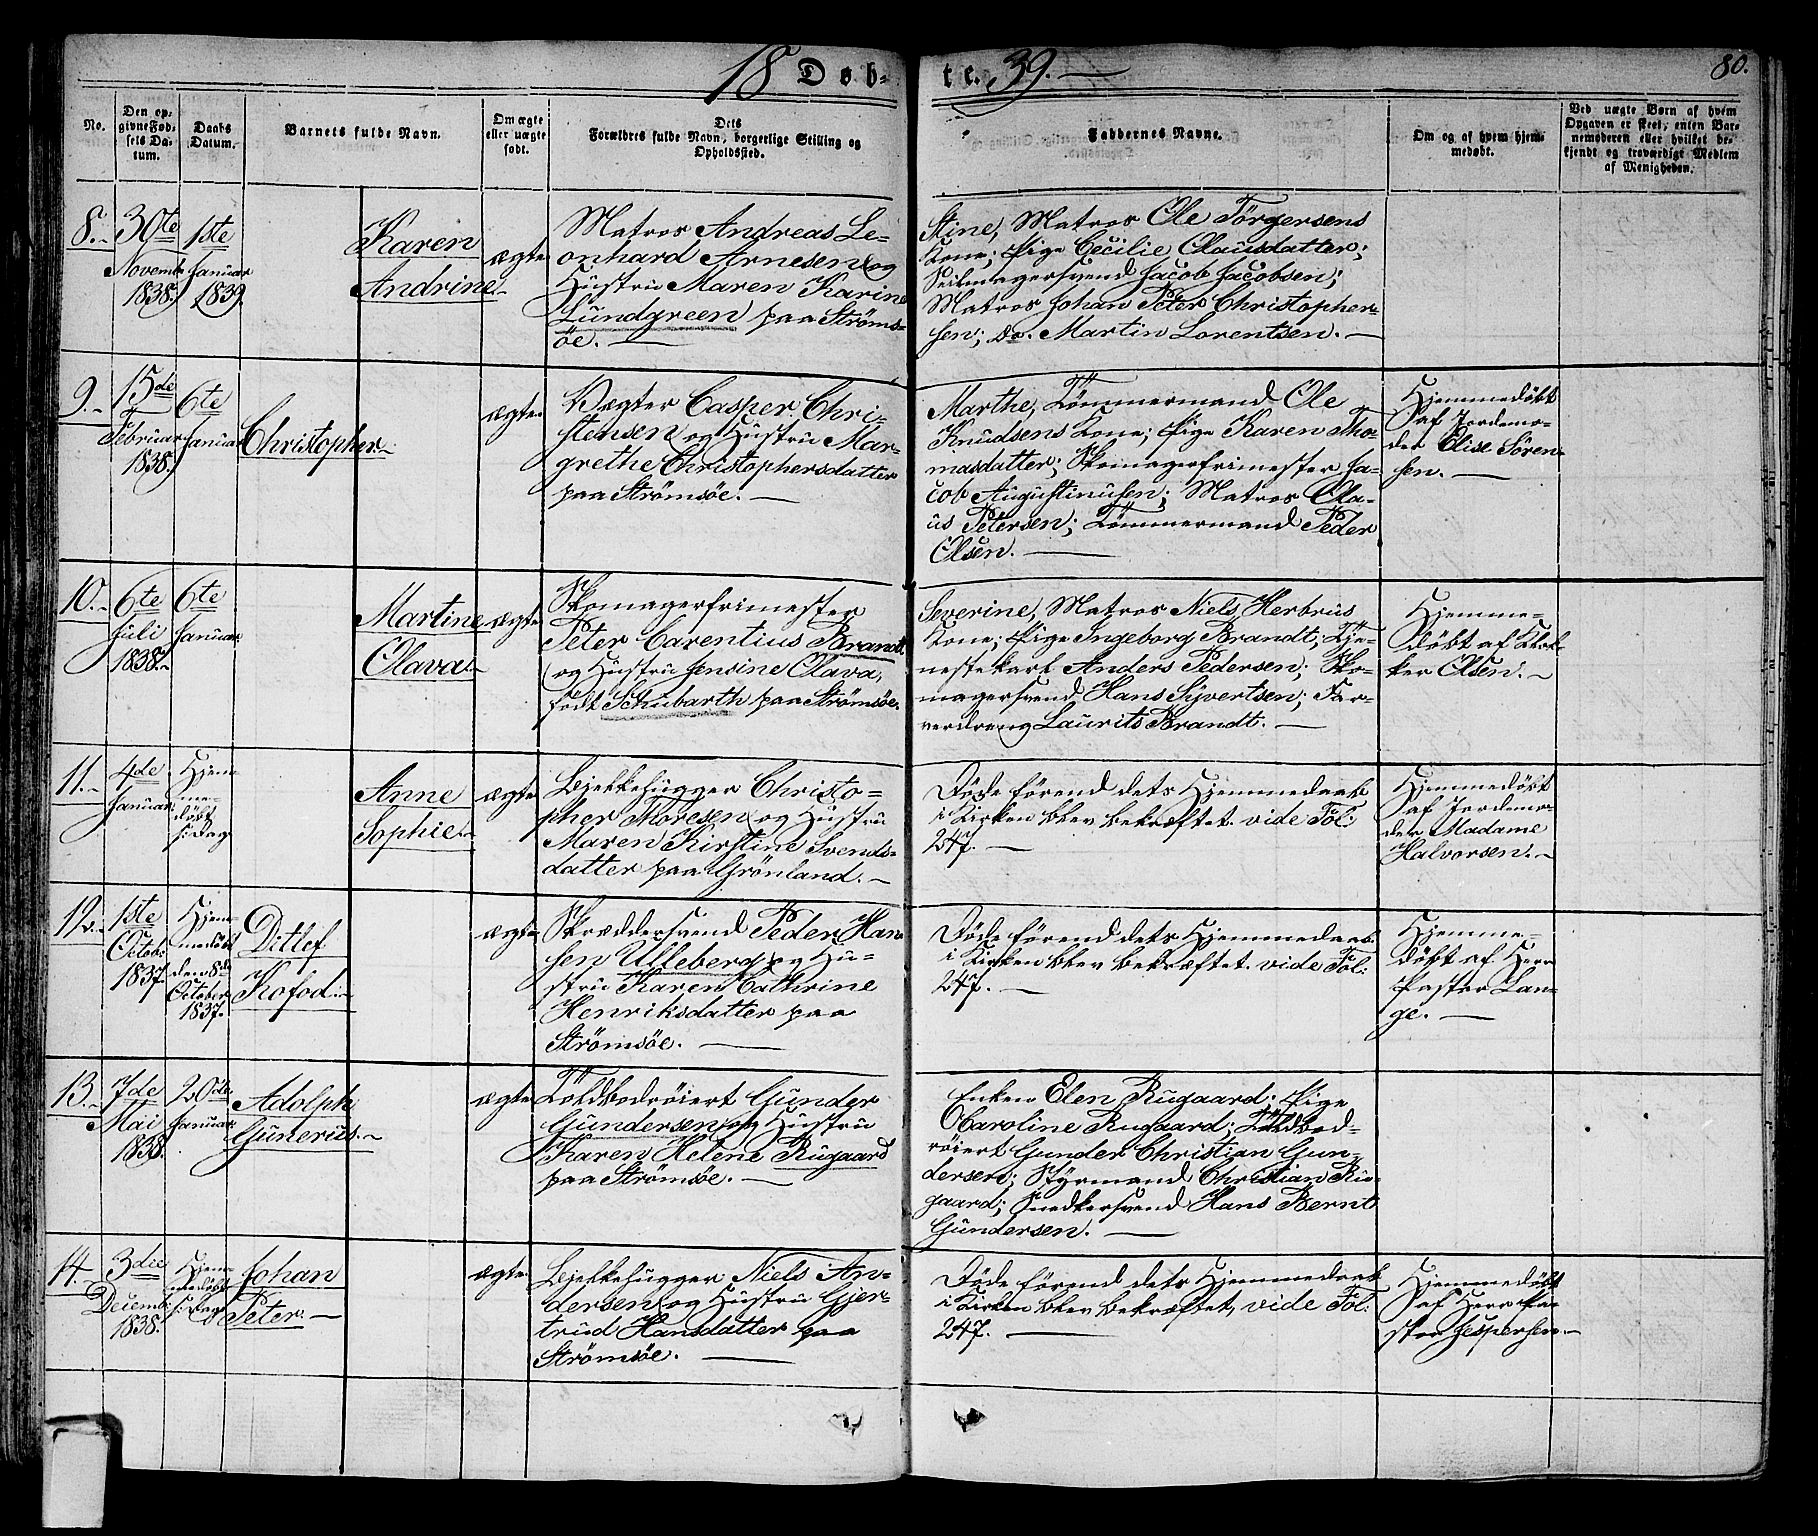 18 Døb-
te. 39.
80.
No.
Den op-
givne Fød-
sels Da-
tum.
Daabs
Datum.
Barnets fulde Navn.
Om ægte
eller uægte
født.
Dets
Forældres fulde Navn, borgerlige Stilling og
Opholdssted.
Faddernes Navne.
Om og af hvem hjem-
medøbt.
Ved uægte Børn af hvem
Opgaven er skeet, enten Bar-
nemoderen eller hvilket be-
kjendt og troværdigt Medlem
af Menigheden.
8.
30te
Novemb.
1838.
1ste
Januar
1839.
Karen
Andrine.
ægte
Matros Andreas Le-
onhard Arnesen og
Hustru Maren Karine
Lundgreen paa Strøms-
øe.
Stine, Matros Ole Törgersens
Kone; Pige Cecilie Clausdatter;
Seilmagersvend Jacob Jacobsen;
Matros Johan Peter Christopher-
sen; do. Martin Lorentsen.
9.
15de
Februar
1838.
6te
Januar
Christopher.
ægte
Vægter Casper Chri-
stensen og Hustru Mar-
grethe Christophersdatter
paa Strømsøe.
Marthe, Tømmermand Ole
Knudsens Kone; Pige Karen Tho-
masdatter; Skomagerfrimester Ja-
cob Augustinusen; Matros Ola-
us Petersen; Tømmermand Peder
Olsen.
Hjemmedøbt
af Jordemo-
der Elise Sören-
sen.
10.
6te
Juli
1838.
6te
Januar
Martine
Olava.
ægte
Skomagerfrimester
Peter Carentius Brandt
og Hustru Jensine Olava,
født Schubarth paa Strømsøe.
Severine, Matros Niels Herbrus
Kone; Pige Ingeborg Brandt; Tje-
nestekarl Anders Pedersen; Sko-
magersvend Hans Syvertsen; Far-
verdreng Laurits Brandt.
Hjemme-
døbt af Klok-
ker Olsen.
11.
4de
Januar
Hjem-
me-
døbt
s: Dag
Anne
Sophie.
ægte
Bjelkehugger Christo-
pher Thoresen og Hustru
Maren Kirstine Svends-
datter paa Grönland.
Döde förend dets Hjemmedaab
i Kirken blev bekræftet. vide Fol:
247.
Hjemmedøbt
af Jordemo-
der Madame
Halvorsen.
12.
1ste
Octob.
1837.
Hjem-
medøbt
den 8de
October
1837.
Ditlef
Kofod.
ægte
Skræddersvend Peder Han-
sen Ulleberg og Hu-
stru Karen Cathrine
Henriksdatter paa
Strømsøe.
Döde förend dets Hjemmedaab
i Kirken blev bekræftet. vide Fol:
247.
Hjemme-
døbt af Herr
Pastor Lan-
ge.
13.
7de
Mai
1838.
20de
Januar
Adolph
Gunerius.
ægte
Toldbedrøiert Gunder
Gundersen og Hustru
Karen Helene Rugaard
paa Strømsøe.
Enken Elen Rugaard; Pige
Caroline Rugaard; Toldbed-
röiert Gunder Christian Gun-
dersen; Styrmand Christian Ru-
gaard; Snedkersvend Hans Bernt
Gundersen.
14.
3die
Decemb.
1838.
Hjem-
medøbt
s: Dag
Johan
Peter.
ægte
Bjelkehugger Niels An-
dersen og Hustru Gjer-
trud Hansdatter paa
Strømsøe.
Döde förend dets Hjemmedaab
i Kirken blev bekræftet, vide Fol:
247.
Hjemmedøbt
af Herr Pa-
stor Jespersen.